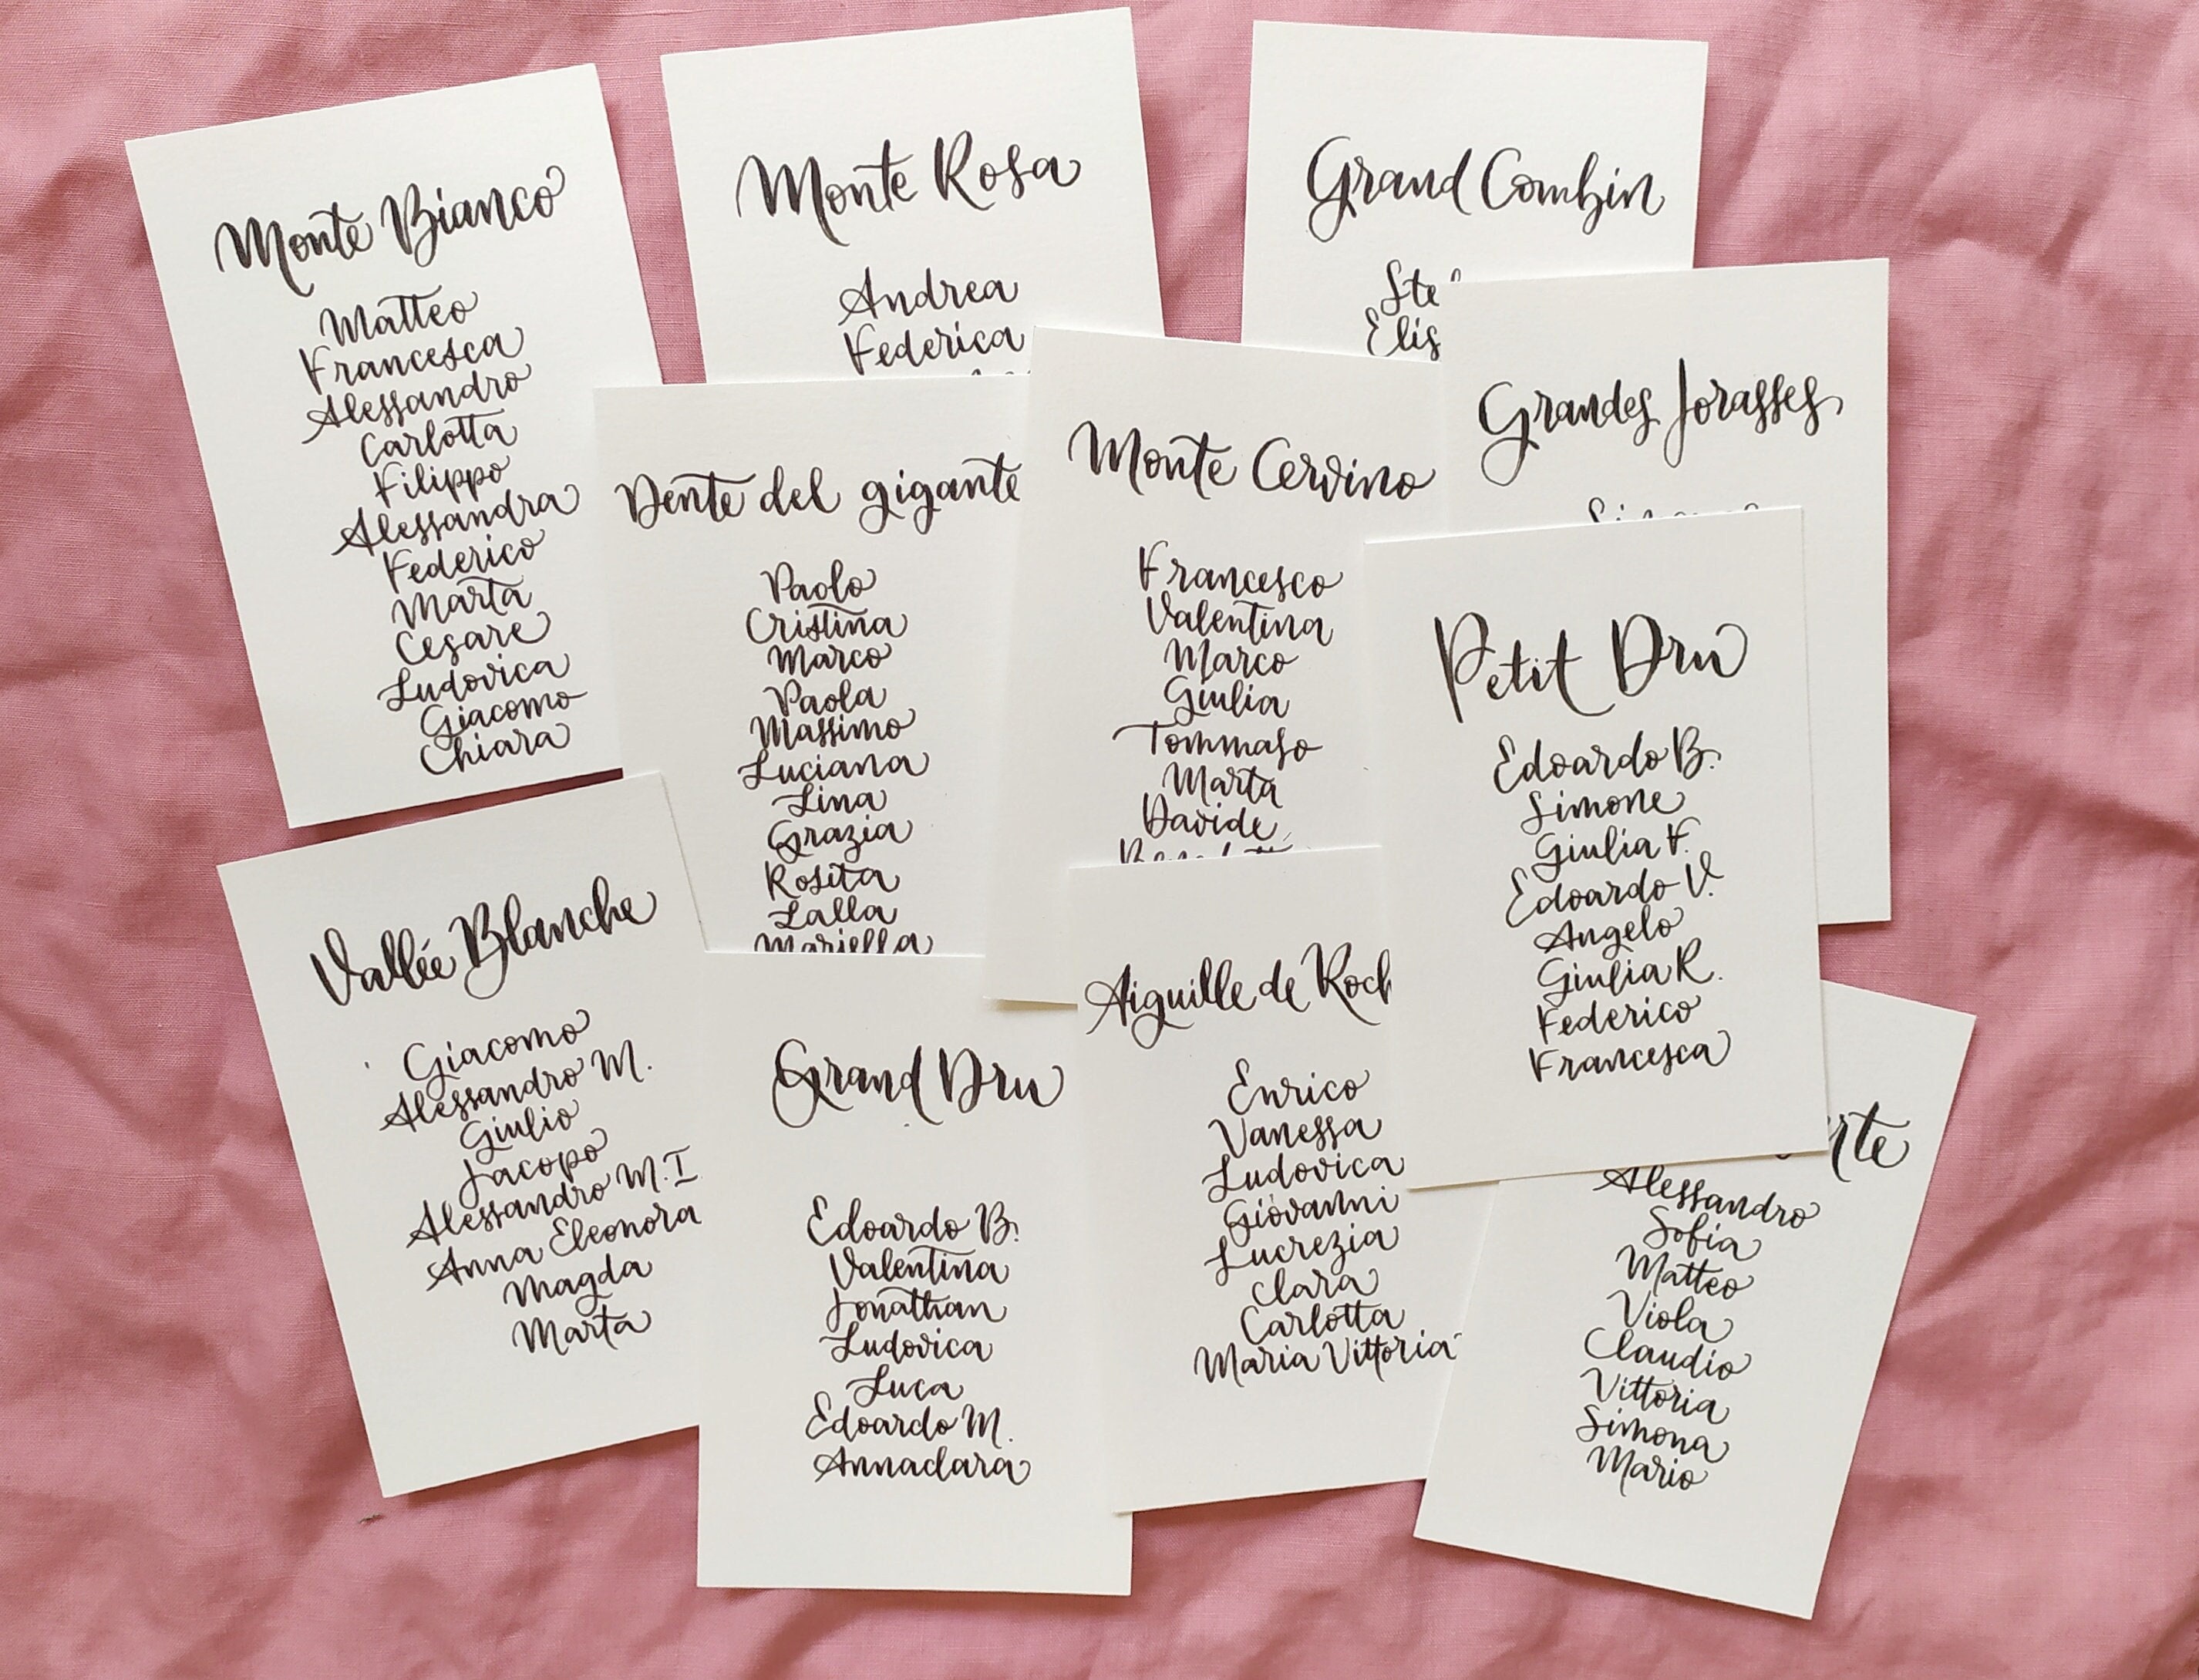 Monte Bianco
Matteo
Francesca
Alessandro
Carlotta
Filippo
Alessandra
Federico
Marta
Cesare
Ludovica
Giacomo
Chiara
Monte Rosa
Andrea
Federica
Grand Combin
Ste
Elis
Dente del gigante
Paolo
Cristina
Marco
Paola
Massimo
Luciana
Lina
Grazia
Rosita
Lalla
Mariella
Monte Cervino
Francesco
Valentina
Marco
Giulia
Tommaso
Marta
Davide
Grandes Jorasses
Petit Dru
Edoardo B.
Simone
Giulia F.
Edoardo V.
Angelo
Giulia R.
Federico
Francesca
Vallée Blanche
Giacomo
Alessandro M.
Giulio
Jacopo
Alessandro M.I
Anna Eleonora
Magda
Marta
Grand Dru
Edoardo B.
Valentina
Jonathan
Ludovica
Luca
Edoardo M.
Annaclara
Aiguille de Roch
Enrico
Vanessa
Ludovica
Giovanni
Lucrezia
Clara
Carlotta
Maria Vittoria
rte
Alessandro
Sofia
Matteo
Viola
Claudio
Vittoria
Simona
Mario